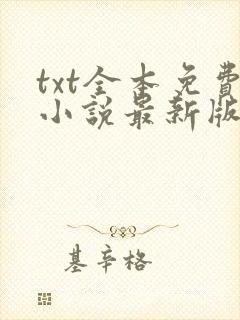 txt全本免費
小說最新版
基辛格